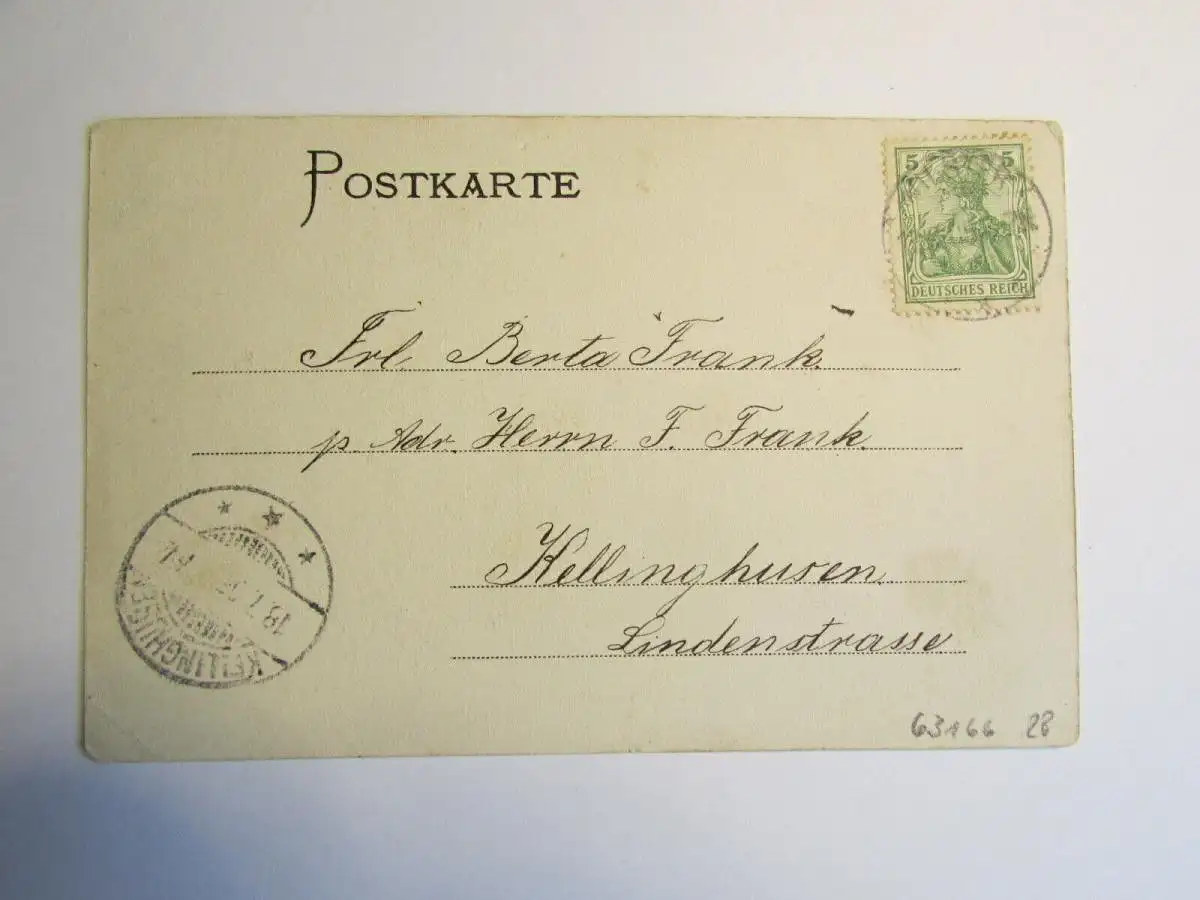 POSTKARTE
5 5
DEUTSCHES REICH
Frl. Berta Frank.
p. Adr. Herrn F. Frank.
Kellinghusen.
Lindenstrasse
KELLINGHUSEN
63166 28